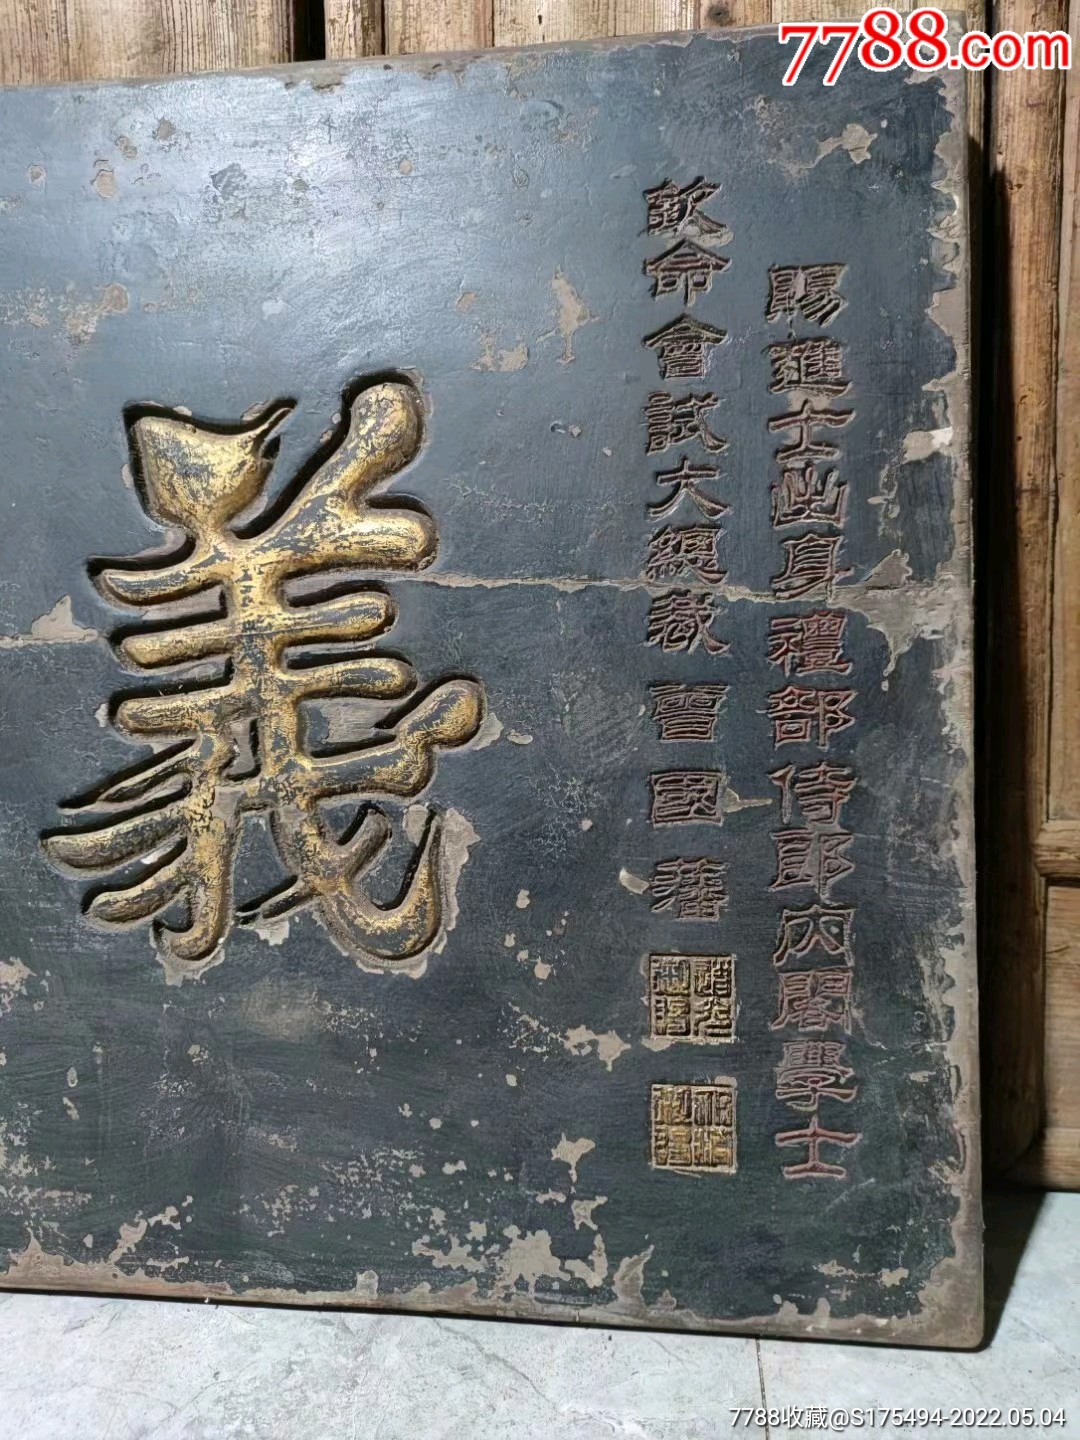 7788.com
賜進士出身禮部侍郎內閣學士
欽命會試大總裁曾國藩
義
7788收藏@S175494-2022.05.04